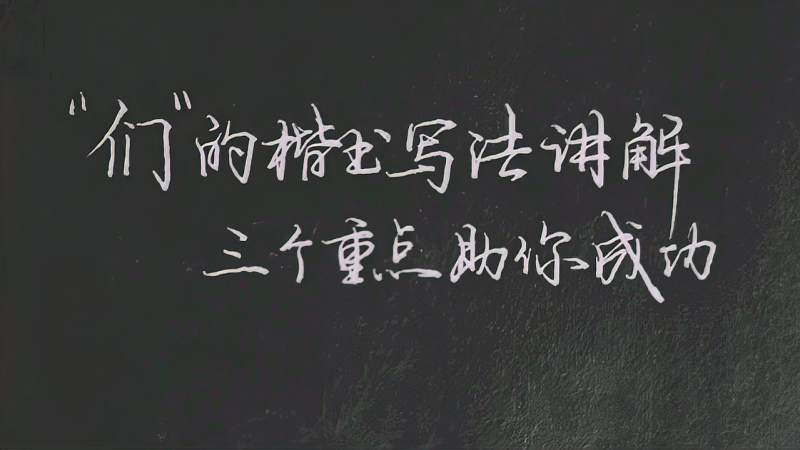 “们”的楷书写法讲解
三个重点助你成功